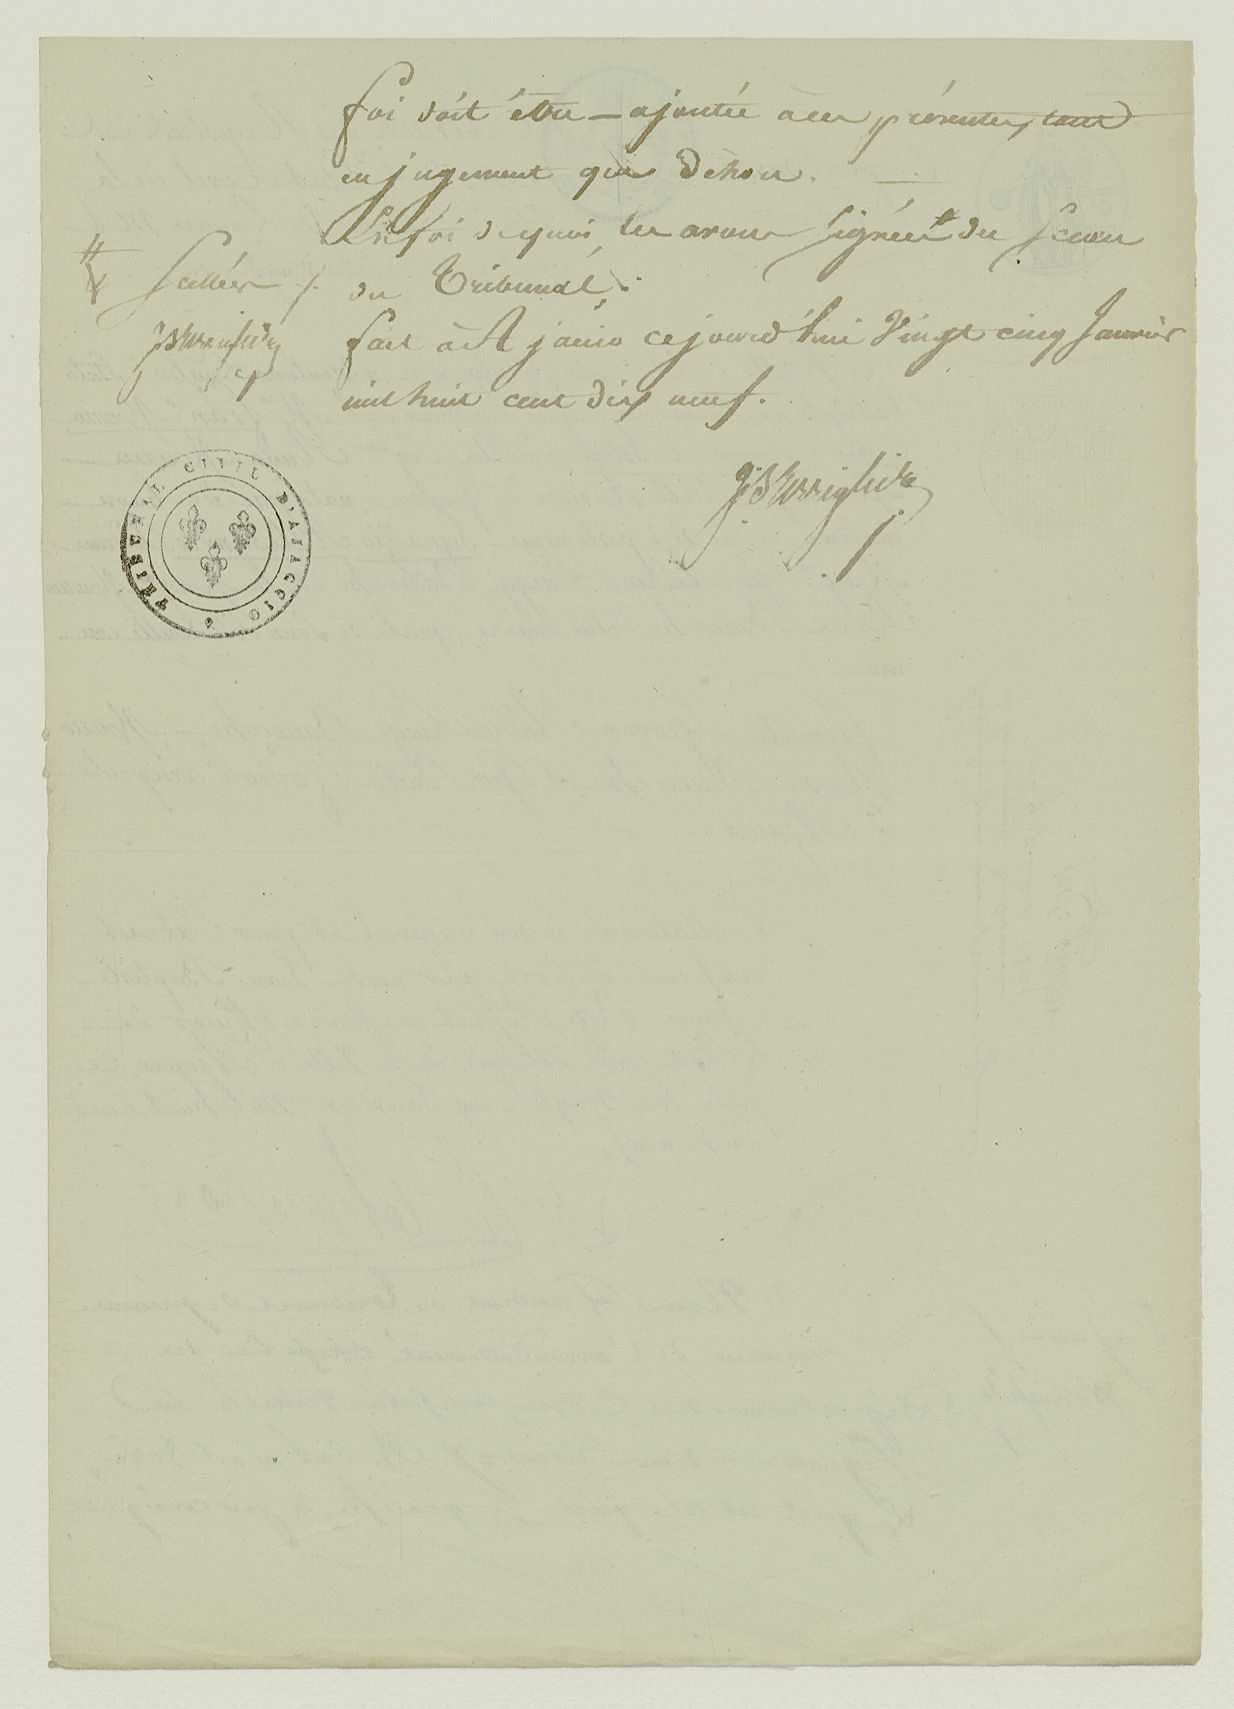 foi doit être ajoutée à ces présentes, tant
en jugement que dehors.
En foi de quoi, les avons signées # du sceau
# et Scellées
du Tribunal.
fait à Ajaccio ce jourd'hui Vingt cinq Janvier
mil huit cent dix neuf.
TRIBUNAL CIVIL D'AJACCIO